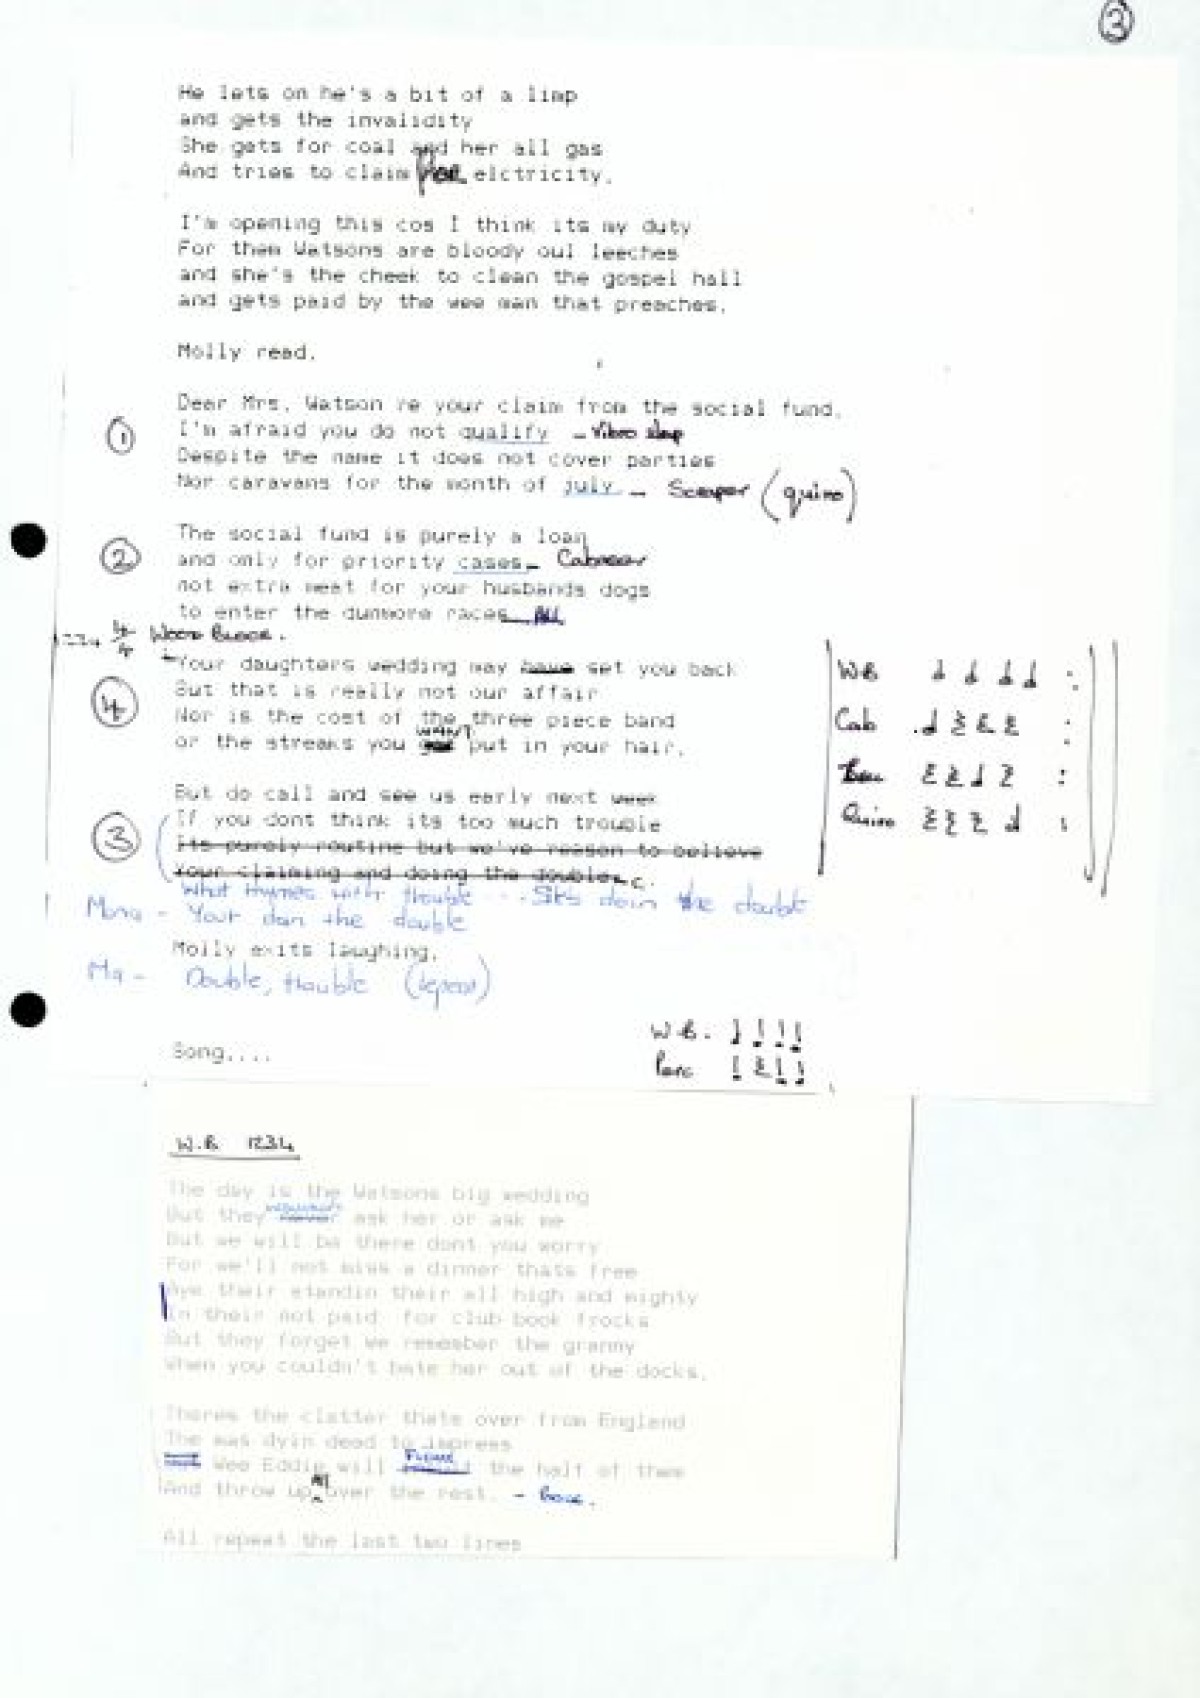 3
He lets on he's a bit of a limp
and gets the invalidity
She gets for coal and her all gas
And tries to claim for elctricity.
I'm opening this cos I think its my duty
For them Watsons are bloody oul leeches
and she's the cheek to clean the gospel hall
and gets paid by the wee man that preaches.
Molly read.
Dear Mrs. Watson re your claim from the social fund.
1 I'm afraid you do not qualify - Vibro slap
Despite the name it does not cover parties
Nor caravans for the month of july - Scraper (quiro)
The social fund is purely a loan
2 and only for priority cases - Cabasar
not extra meat for your husbands dogs
to enter the dunmore races - All
1234 4/4 Wood Block.
Your daughters wedding may have set you back
4 But that is really not our affair
Nor is the cost of the three piece band
or the streaks you want put in your hair.
W.B
Cab
Quiro
But do call and see us early next week
3 If you dont think its too much trouble
Its purely routine but we've reason to believe
Your claiming and doing the double
What rhymes with trouble ... She's doin the double
Mona - Your doin the double
Molly exits laughing.
Ma - Double, trouble (repeat)
W.B.
Perc
Song....
W.B 1234
The day is the Watsons big wedding
But they never ask her or ask me
But we will be there dont you worry
For we'll not miss a dinner thats free
Aye their standin their all high and mighty
In their not paid for club book frocks
But they forget we remember the granny
When you couldn't bate her out of the docks.
Theres the clatter thats over from England
The mas dyin dead to impress
Wee Eddie will the half of them
And throw up all over the rest. -
All repeat the last two lines